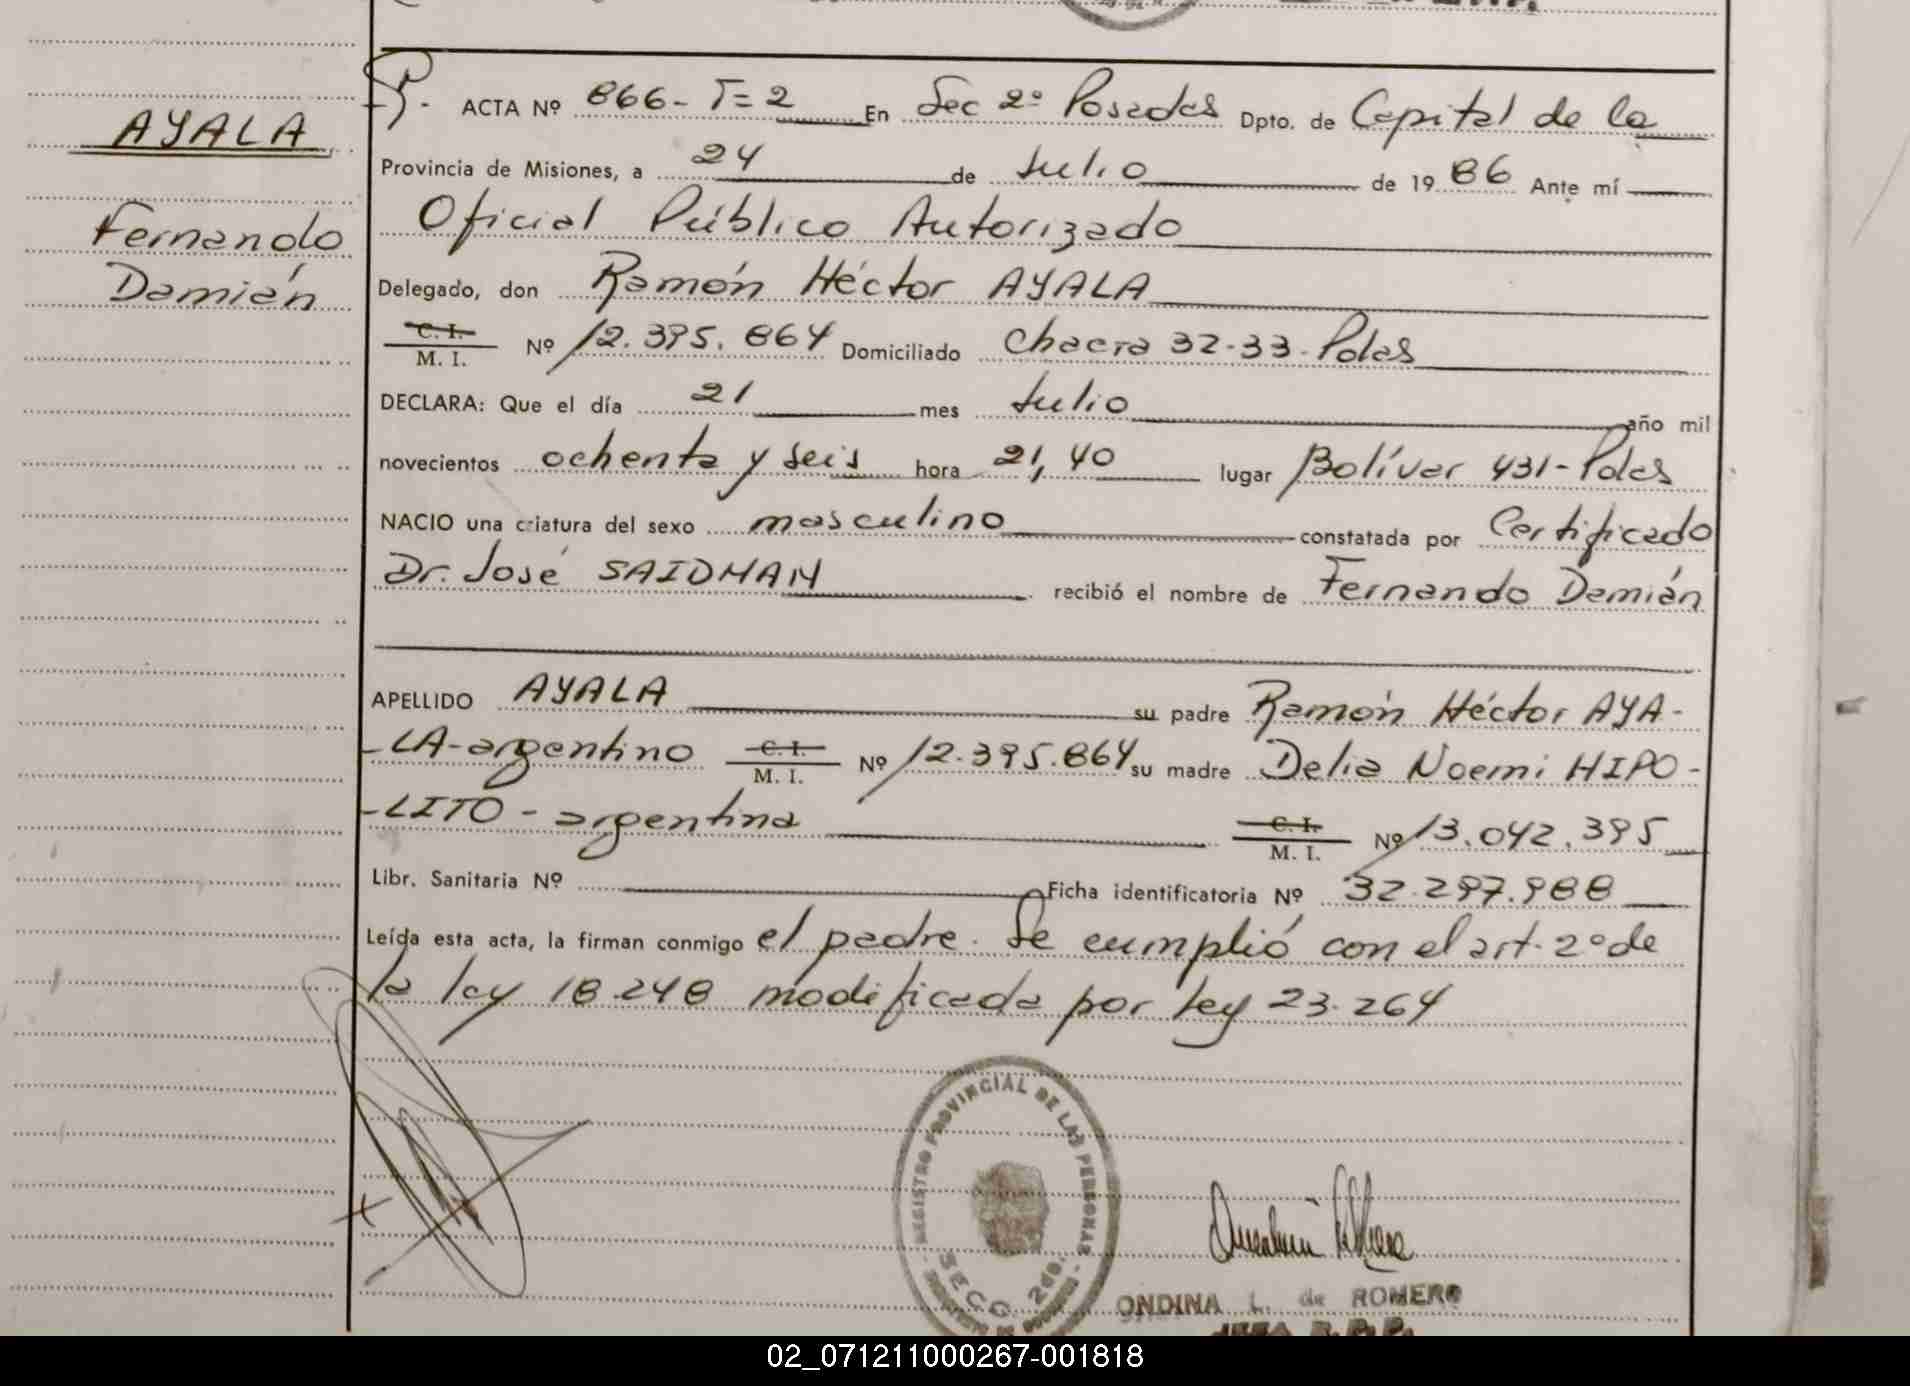 AYALA
Fernando
Damián
ACTA Nº 866- T=2 En Sec 2º Posadas Dpto. de Capital de la
Provincia de Misiones, a 24 de Julio de 1986 Ante mí
Oficial Público Autorizado
Delegado, don Ramón Héctor AYALA
C. I.
M. I. Nº 12.395.864 Domiciliado Chacra 32-33-Pdas
DECLARA: Que el día 21 mes Julio año mil
novecientos ochenta y seis hora 21,40 lugar Bolívar 431-Pdas
NACIO una criatura del sexo masculino constatada por Certificado
Dr. José SAIDMAN recibió el nombre de Fernando Damián
APELLIDO AYALA su padre Ramón Héctor AYA-
-LA-argentino C. I. M. I. Nº 12.395.864 su madre Delia Noemi HIPO-
-LITO-argentina C. I. M. I. Nº 13.042.395
Libr. Sanitaria Nº Ficha identificatoria Nº 32.297.988
Leída esta acta, la firman conmigo el padre. Se cumplió con el art. 2º de
la ley 18.248 modificada por ley 23.264
REGISTRO PROVINCIAL DE LAS PERSONAS
SECC. 2da.
ONDINA L. de ROMERO
02_071211000267-001818